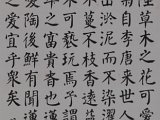 陸草木之花可愛
自李唐來世人
出淤泥而不染
不蔓不枝香遠益
可褻玩焉予謂
之富貴者也
愛陶後鮮有聞蓮
之愛宜乎眾矣